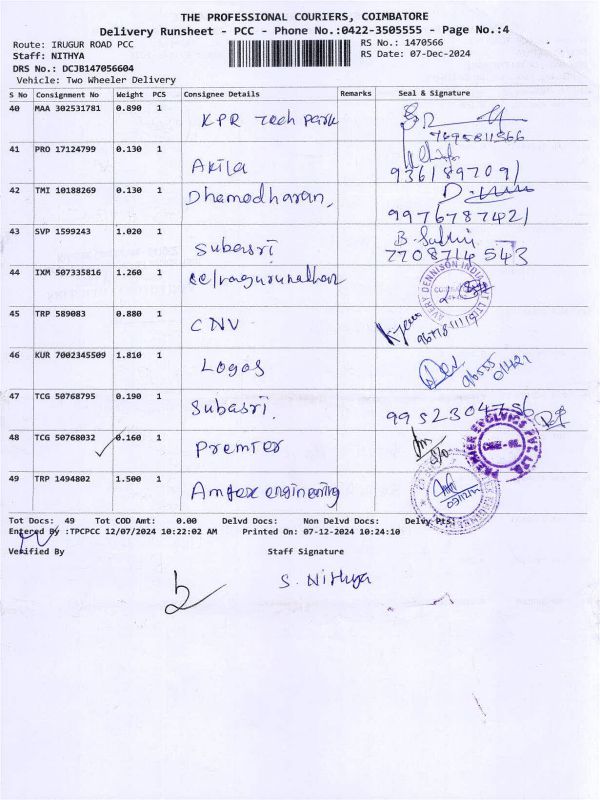 THE PROFESSIONAL COURIERS, COIMBATORE
Delivery Runsheet - PCC - Phone No.:0422-3505555 - Page No.:4
Route: IRUGUR ROAD PCC
RS No.: 1470566
Staff: NITHYA
RS Date: 07-Dec-2024
DRS No.: DCJB147056604
Vehicle: Two Wheeler Delivery
S No Consignment No Weight PCS Consignee Details Remarks Seal & Signature
40 MAA 302531781 0.890 1 KPR Tech park
7695811566
41 PRO 17124799 0.130 1 Akila
9361897091
42 TMI 10188269 0.130 1 Dhamodharan,
9976787421
43 SVP 1599243 1.020 1 Subasri
7708714543
44 IXM 507335816 1.260 1 Selvagurunathan
AVERY DENNISON INDIA PVT LTD
45 TRP 589083 0.880 1 CNV
46 KUR 7002345509 1.810 1 Logos
47 TCG 50768795 0.190 1 Subasri.
9952304756
48 TCG 50768032 0.160 1 Premier
49 TRP 1494802 1.500 1 Amtex engineering
Tot Docs: 49 Tot COD Amt: 0.00 Delvd Docs: Non Delvd Docs: Delvy Pts:
Entered By :TPCPCC 12/07/2024 10:22:02 AM Printed On: 07-12-2024 10:24:10
Verified By Staff Signature
S. Nithya